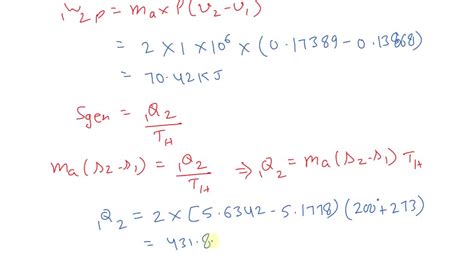 ₁W₂p = ma x P (υ₂-υ₁)
= 2 × 1 × 10⁶ × (0.17389 - 0.13868)
= 70.42 KJ
Sgen = ₁Q₂ / TH
ma (s₂-s₁) = ₁Q₂ / TH ⇒ ₁Q₂ = ma(s₂-s₁) TH
₁Q₂ = 2 × [5.6342 - 5.1778) (200° + 273)
= 431.8